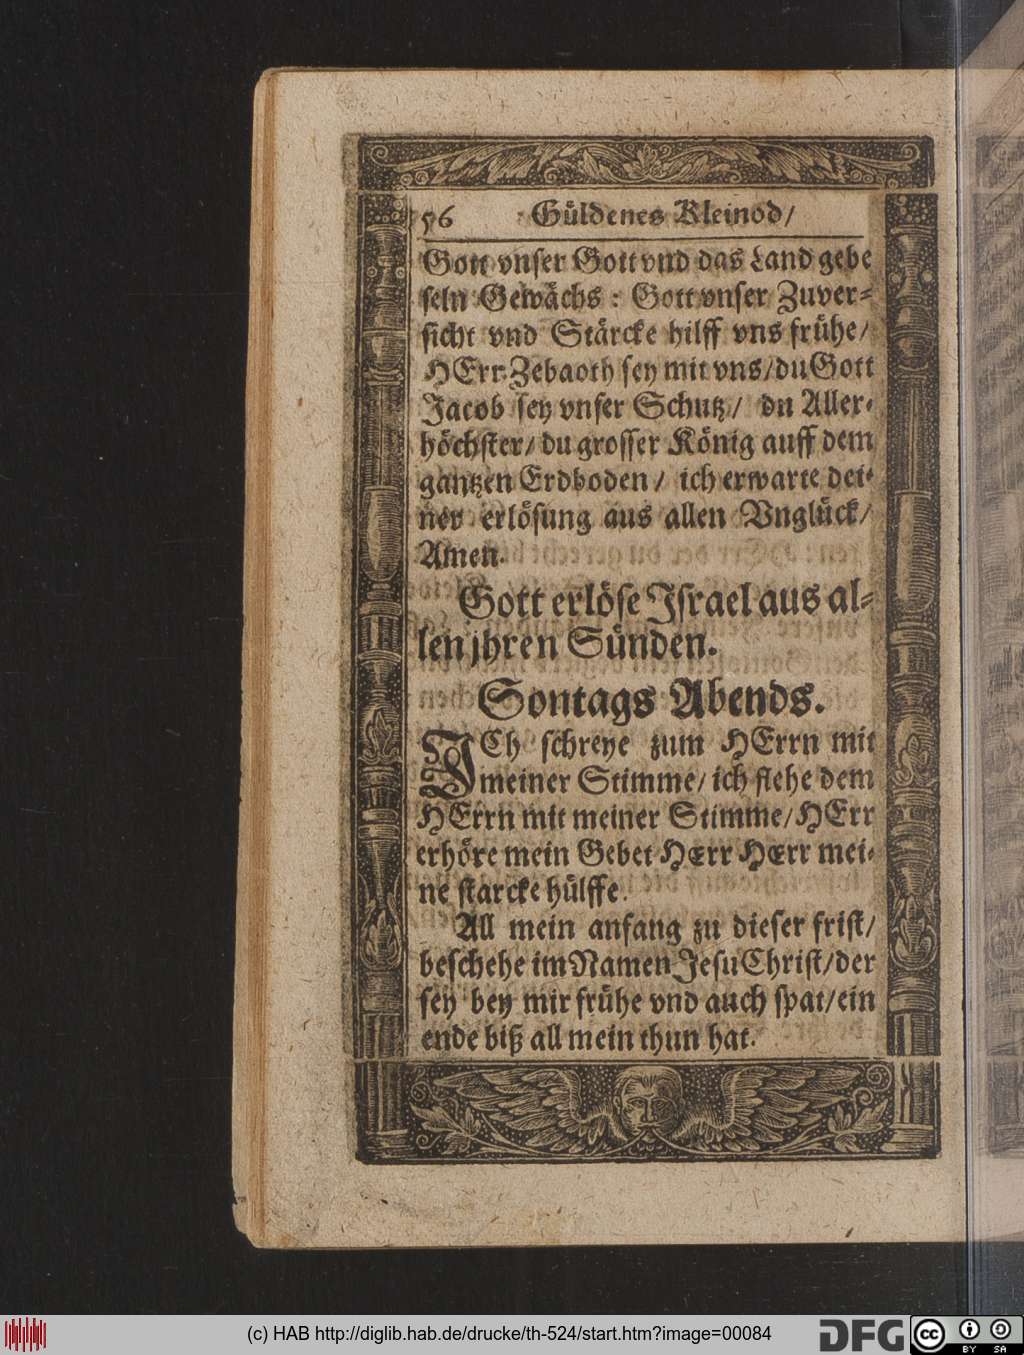 56 Güldenes Kleinod/
Gott vnser Gott vnd das Land gebe
sein Gewächs : Gott vnser Zuver⸗
sicht vnd Stärcke hilff vns frühe/
HErr Zebaoth sey mit vns/du Gott
Jacob sey vnser Schutz/ du Aller⸗
höchster/du grosser König auff dem
gantzen Erdboden/ ich erwarte dei⸗
ner erlösung aus allen Vnglück/
Amen.
Gott erlöse Israel aus al⸗
len jhren Sünden.
Sontags Abends.
ICh schreye zum HErrn mit
meiner Stimme/ich flehe dem
HErrn mit meiner Stimme/HErr
erhöre mein Gebet HErr HErr mei⸗
ne starcke hülffe.
All mein anfang zu dieser frist/
beschehe im Namen Jesu Christ/der
sey bey mir frühe vnd auch spat/ein
ende biß all mein thun hat.
(c) HAB http://diglib.hab.de/drucke/th-524/start.htm?image=00084
DFG
cc BY SA